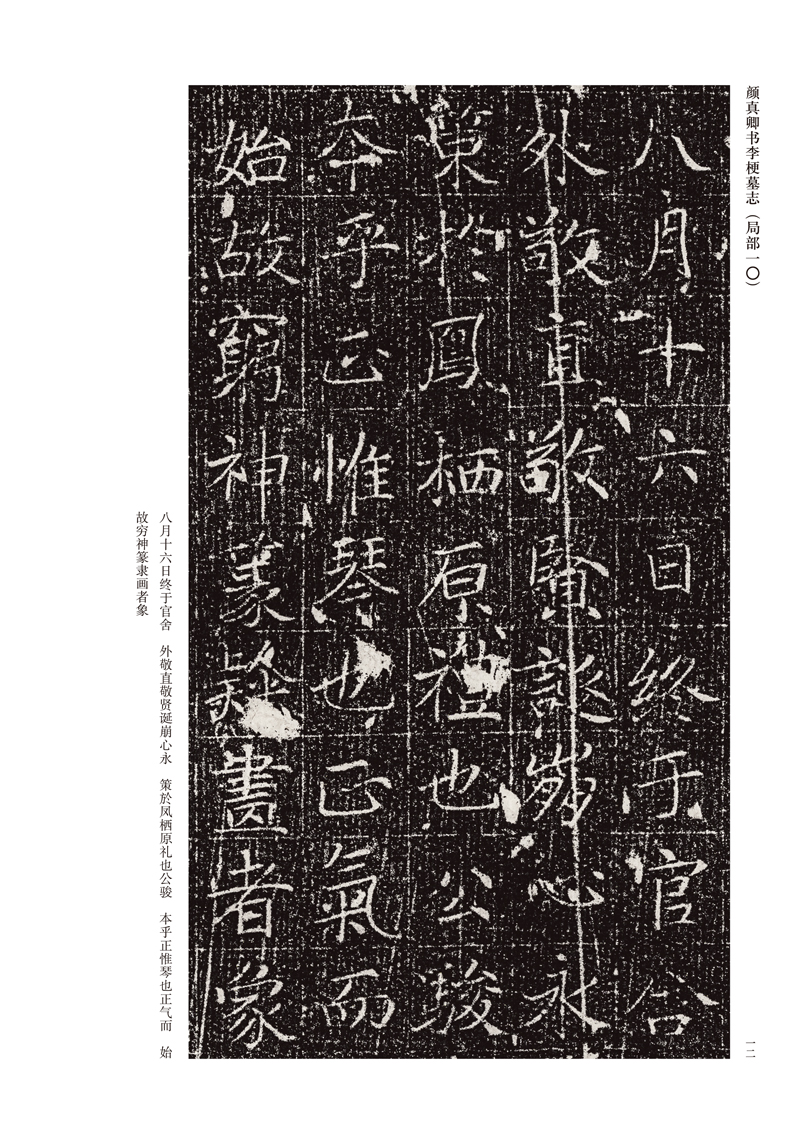 颜真卿书李梗墓志（局部一〇）
八月十六日終于官舍
外敬直敬賢誕崩心永
策於鳳栖原禮也公駿
夲乎正惟琴也正氣而
始故窮神篆隸畫者象
八月十六日终于官舍　外敬直敬贤诞崩心永　策於凤栖原礼也公骏　本乎正惟琴也正气而　始
故穷神篆隶画者象
一二